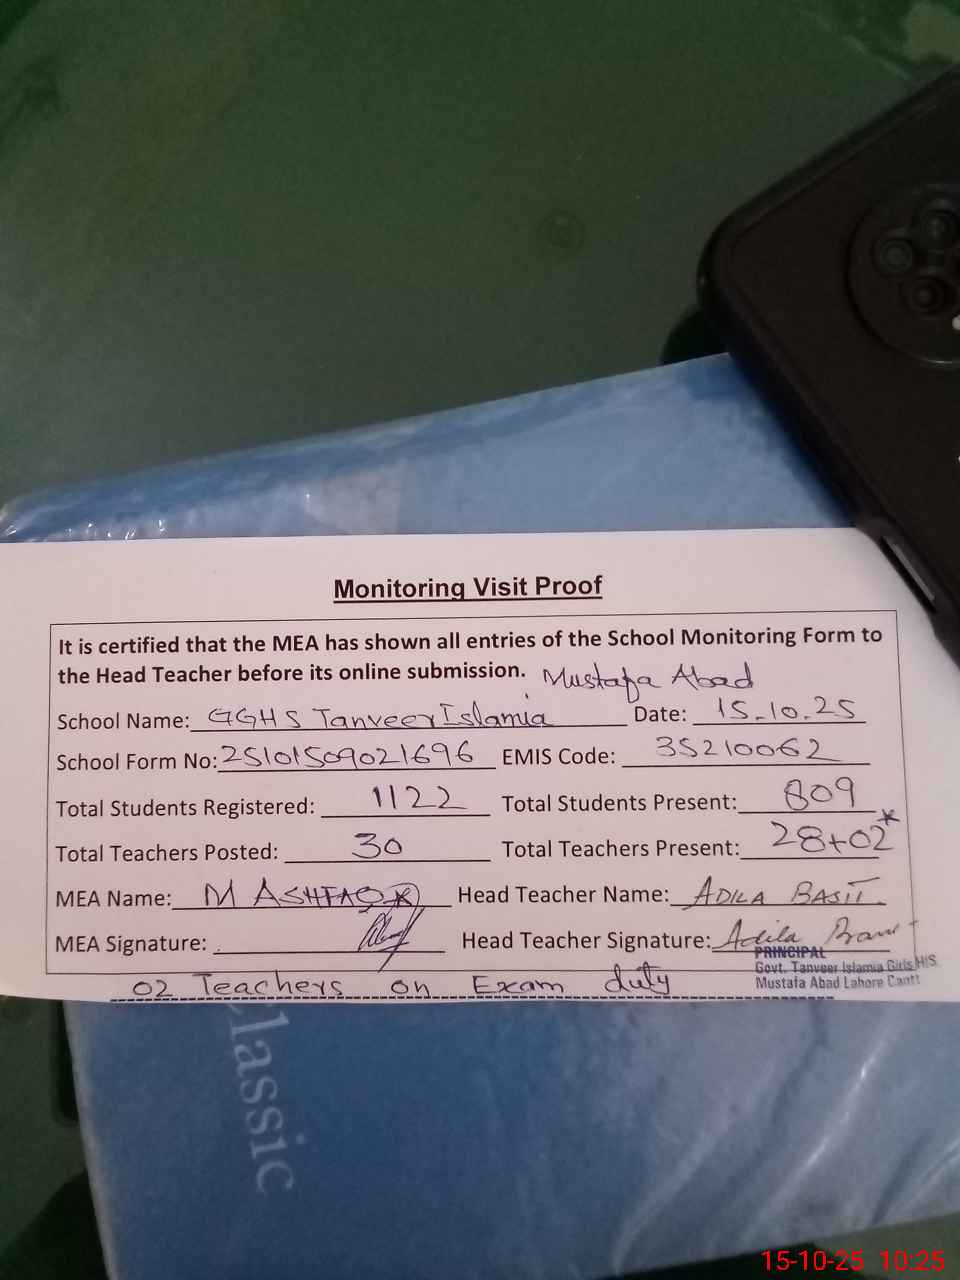 Monitoring Visit Proof
It is certified that the MEA has shown all entries of the School Monitoring Form to
the Head Teacher before its online submission. Mustafa Abad
School Name: GGHS Tanveer Islamia Date: 15.10.25
School Form No: 25101509021696 EMIS Code: 35210062
Total Students Registered: 1122 Total Students Present: 809
Total Teachers Posted: 30 Total Teachers Present: 28+02*
MEA Name: M ASHFAQ Head Teacher Name: ADILA BASIT
MEA Signature: Head Teacher Signature: Adila
PRINCIPAL
Govt. Tanveer Islamia Girls H/S
Mustafa Abad Lahore Cantt
02 Teachers on Exam duty
Classic
15-10-25 10:25